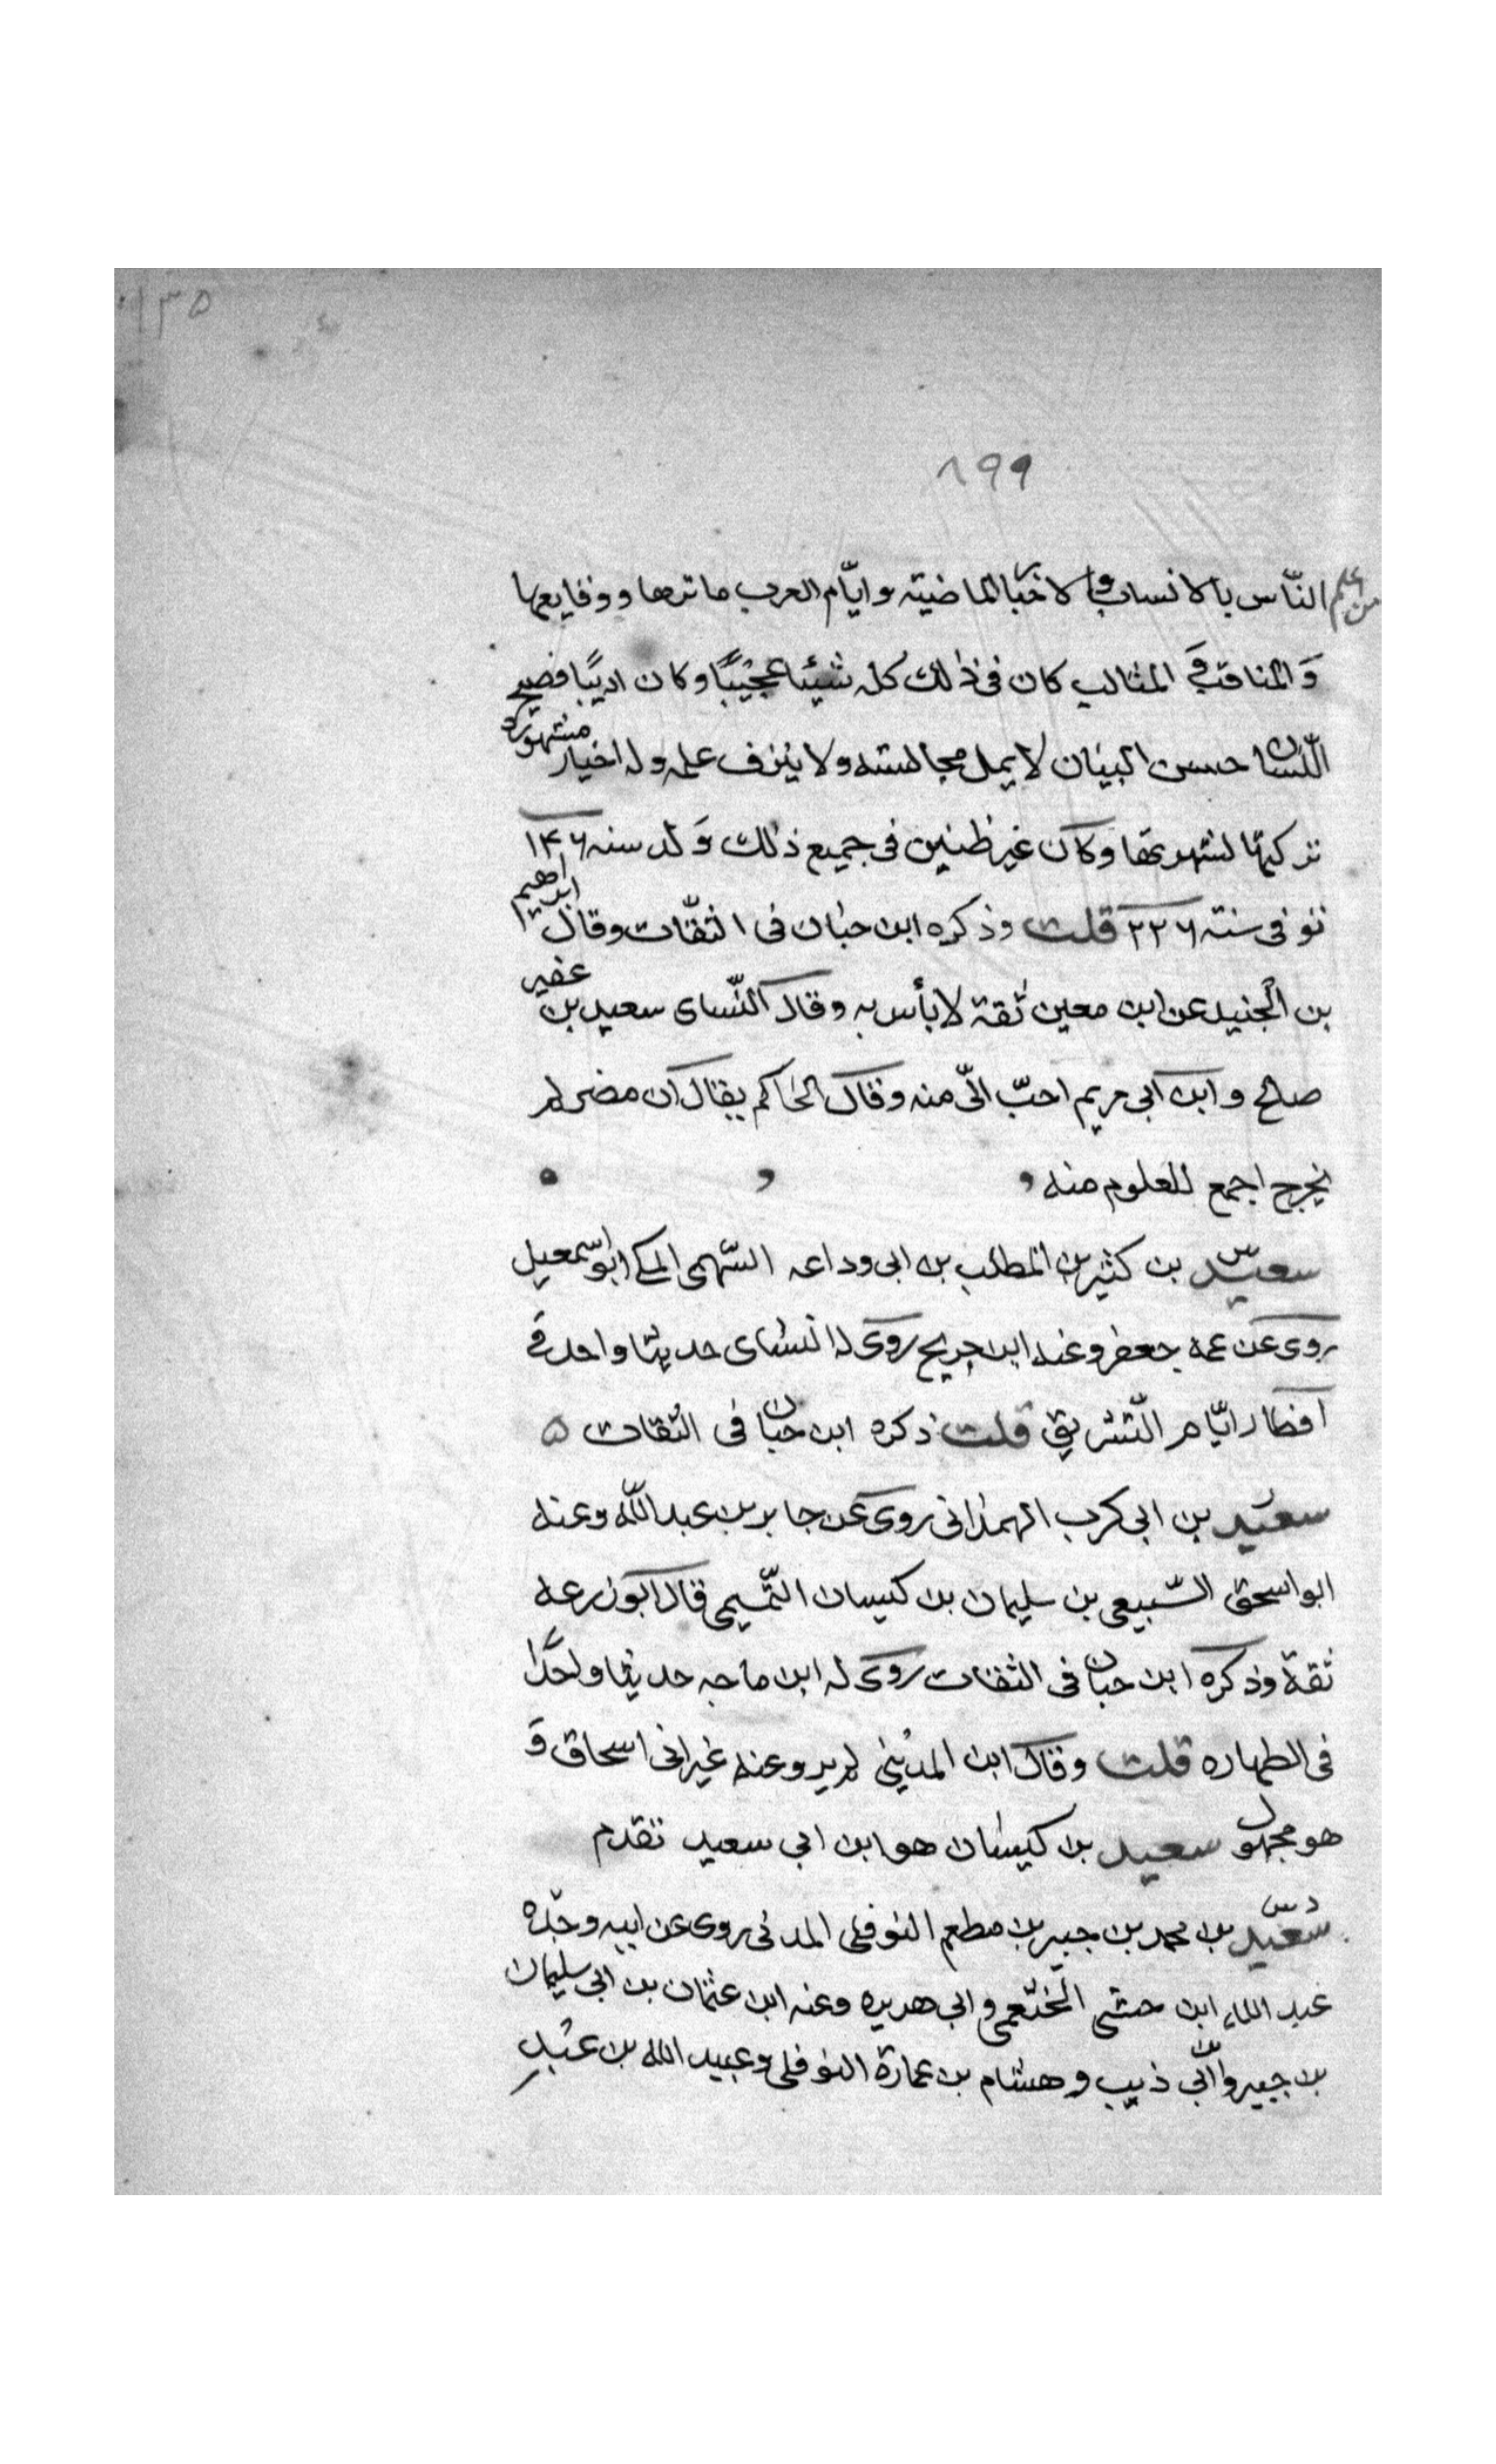 ١٣٥
٨٩٩
من علم الناس بالانساب والاخبار الماضية وايّام العرب ماثرها ووقايعها
وَالمناقب وَ المثالب كان فى ذلك كله شيئا عجيبًا وكان اديبًا فصيح
اللّسان حسن البيان لا يمل مجالسته ولا ينزف علمه وله اخبار مشهورة
تركتها لشهرتها وكان غير ظنين فى جميع ذلك وَلد سنه ١٤٦
توفى سنة ٢٢٦ قلت وذكره ابن حبان فى الثقّات وقال ابراهيم
بن الجنيد عن ابن معين ثقة لا بأس به وقال النّساى سعيد بن عفير
صالح و ابن ابى مريم احبّ الىّ منه وقال الحاكم يقال ان مضر لم
يخرج اجمع للعلوم منه
سعيد بن كثير بن المطلب بن ابى وداعه السّهمى المكى ابو اسمعيل
س
روى عن عمه جعفر وعنه ابن جريج روى له النساى حديثا واحد فى
افطار ايّام التّشريق قلت ذكره ابن حبان فى الثقات ۵
سعيد بن ابى كرب الهمدانى روى عن جابر بن عبد اللّه وعنه
ابو اسحق السّبيعى بن سليمان بن كيسان التّميمى قال ابو زرعه
ثقة وذكره ابن حبان فى الثقات روى له ابن ماجه حديثا واحدًا
فى الطهاره قلت وقال ابن المدينى لم يرو عنه غير ابى اسحاق وَ
هو مجهول سعيد بن كيسان هو ابن ابى سعيد تقدم
د س
سعيد بن محمد بن جبير بن مطعم النوفلى المدنى روى عن ابيه وجدّه
عبد الله ابن حبشى الخثعمى وابى هريره وعنه ابن عثمان بن ابى سليمان
بن جبير وابن ابى ذيب و هشام بن عمارة النوفلى وعبيد الله بن عبد